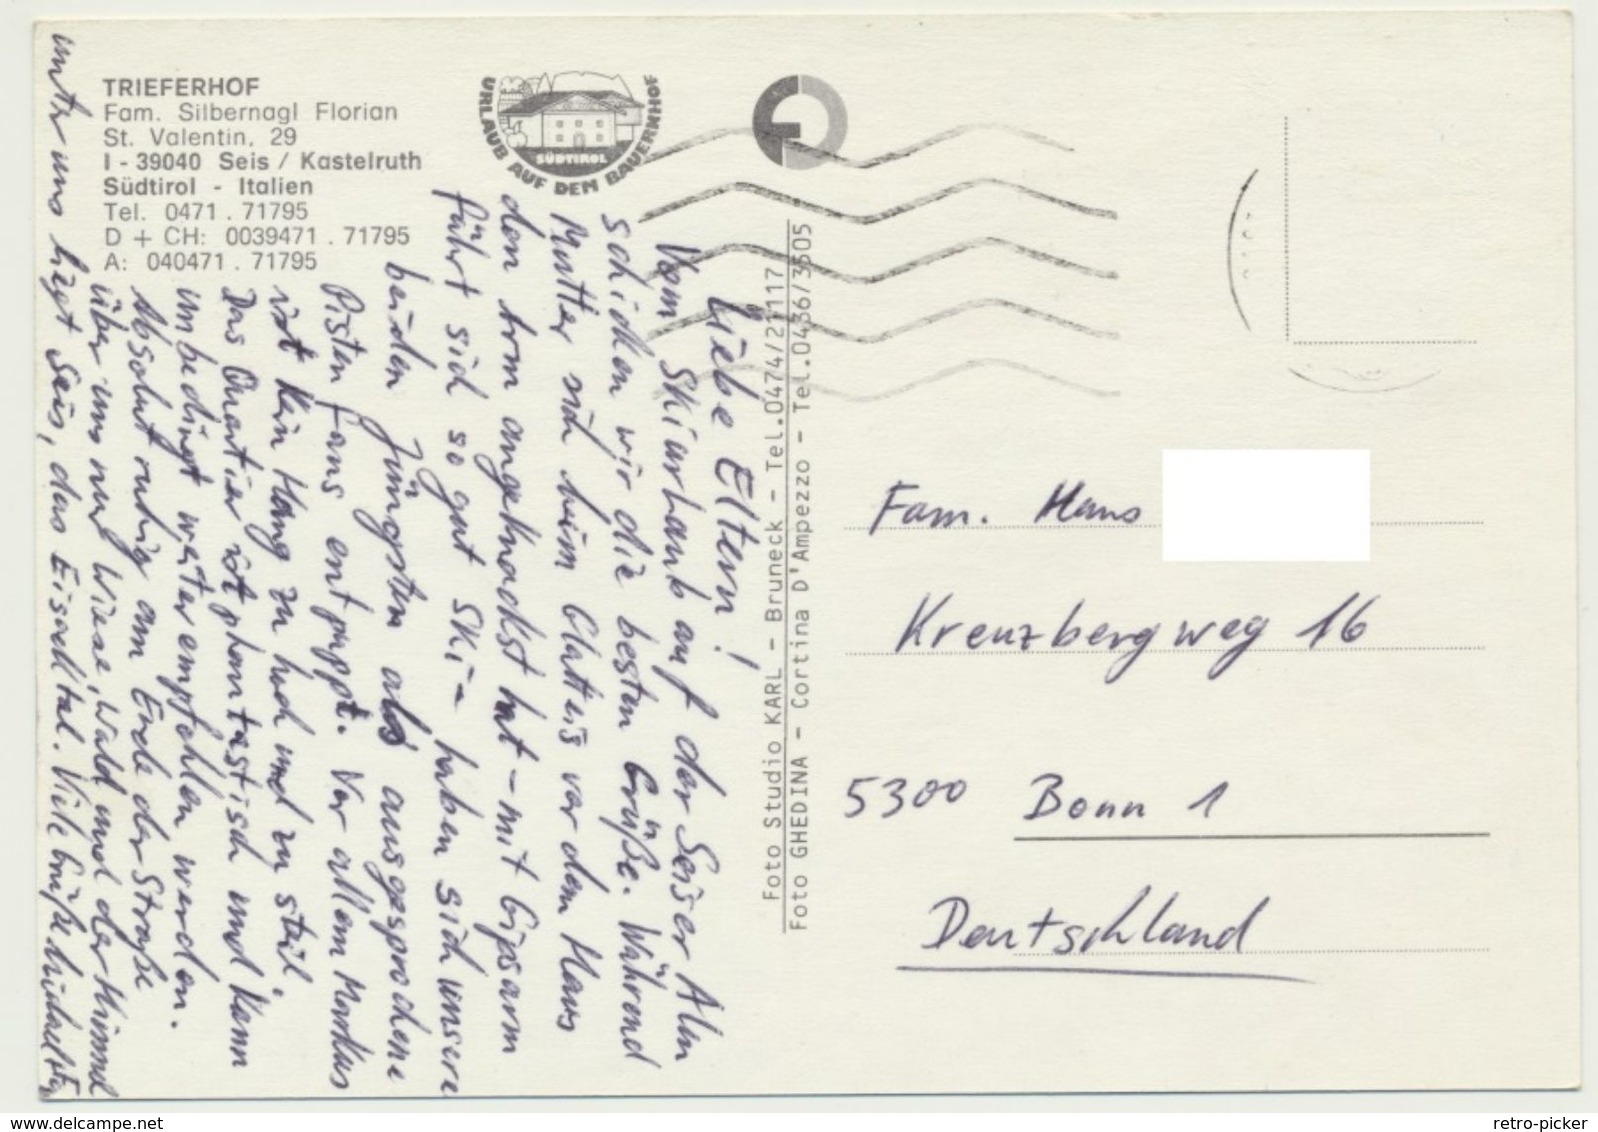 TRIEFERHOF
Fam. Silbernagl Florian
St. Valentin, 29
I - 39040 Seis / Kastelruth
Südtirol - Italien
Tel. 0471 . 71795
D + CH: 0039471 . 71795
A: 040471 . 71795
URLAUB AUF DEM BAUERNHOF
SÜDTIROL
Liebe Eltern!
Vom Skiurlaub auf der Seiser Alm
schicken wir die besten Grüße. Während
Mutter sich beim Glatteis vor dem Haus
den Arm angeknackst hat - mit Gipsarm
fährt sich so gut Ski - haben sich unsere
beiden Jüngsten als ausgesprochene
Pistenfans entpuppt. Vor allem Markus
ist kein Hang zu hoch und zu steil.
Das Quartier ist phantastisch und kann
unbedingt weiterempfohlen werden.
Absolut ruhig am Ende der Straße
über uns nur Wiese, Wald und der Himmel
unter uns liegt Seis, das Eisacktal. Viele Grüße
Foto Studio KARL - Bruneck - Tel.0474/21117
Foto GHEDINA - Cortina D'Ampezzo - Tel.0436/3505
Fam. Hans
Kreuzbergweg 16
5300 Bonn 1
Deutschland
www.delcampe.net
retro-picker